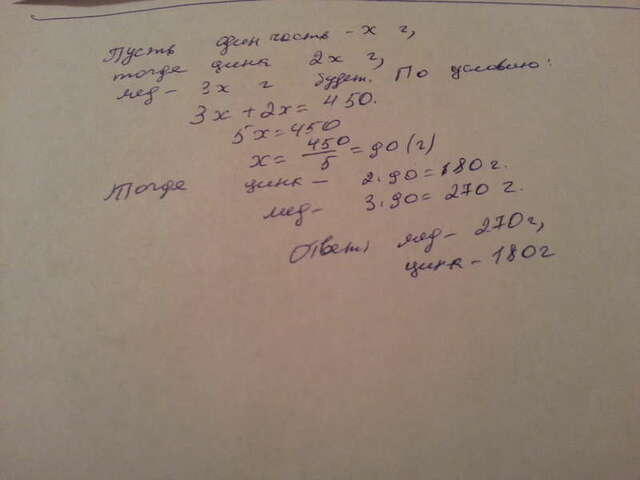 Пусть один часть - x г,
тогда цинка 2x г,
мед - 3x г будет. По условию:
3x + 2x = 450.
5x = 450
x = 450/5 = 90 (г)
Тогда цинк - 2·90 = 180 г.
мед - 3·90 = 270 г.
Ответ: мед - 270 г,
цинк - 180 г